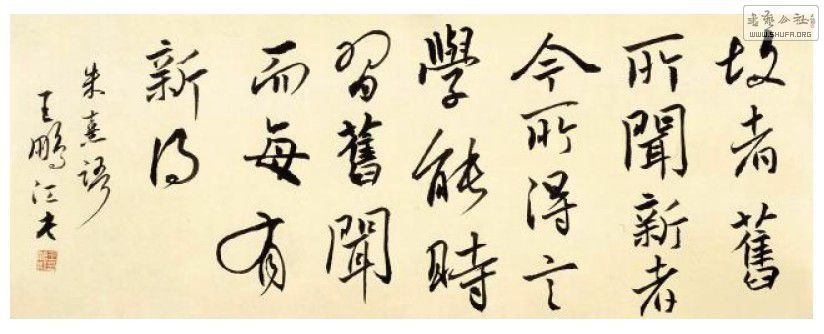 故者舊
所聞新者
今所得言
學能時
習舊聞
而每有
新得
朱熹語
王鵬江书
WWW.SHUFA.ORG